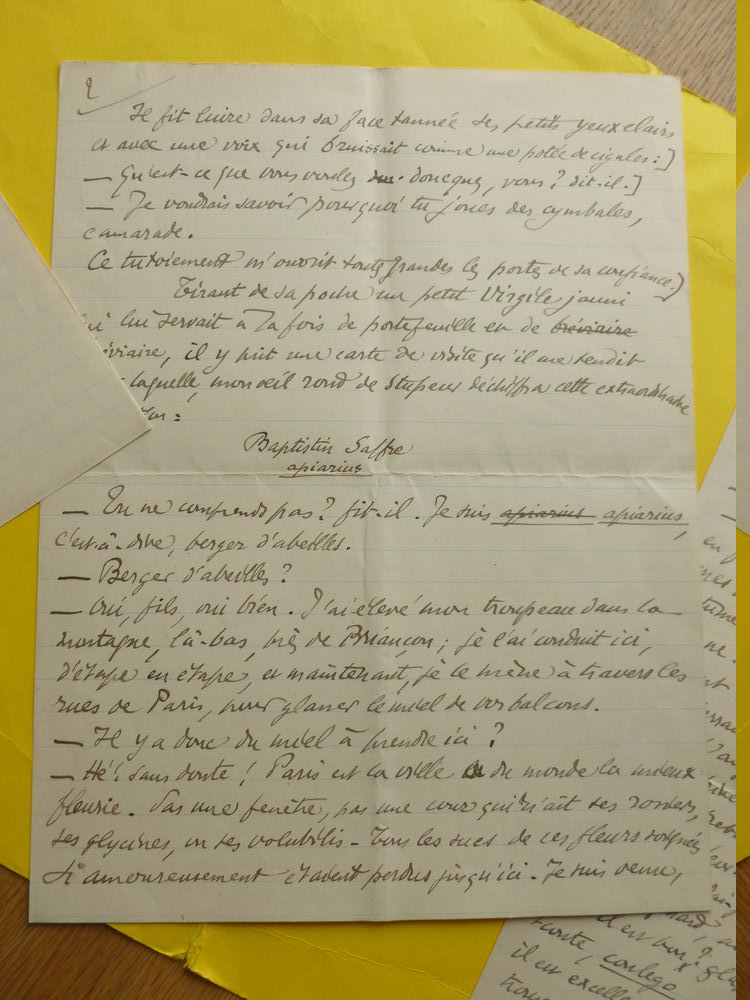 2
Il fit luire dans sa face tannée ses petits yeux clairs
et avec une voix qui bruissait comme une potée de cigales :]
— Qu'est-ce que vous voulez doncque, vous ? dit-il.]
— Je voudrais savoir pourquoi tu joues des cymbales,
camarade.
Ce tutoiement m'ouvrit toutes grandes les portes de sa confiance.]
Tirant de sa poche un petit Virgile jauni
qui lui servait à la fois de portefeuille et de bréviaire
bréviaire, il y prit une carte de visite qu'il me tendit
laquelle, mon oeil rond de stupeur déchiffra cette extraordinaire
Baptistin Saffre
apiarius
— Tu ne comprends pas ? fit-il. Je suis apiarius apiarius,
c'est-à-dire, berger d'abeilles.
— Berger d'abeilles ?
— Oui, fils, oui bien. J'ai élevé mon troupeau dans la
montagne, là-bas, près de Briançon ; je l'ai conduit ici,
d'étape en étape, et maintenant, je le mène à travers les
rues de Paris, pour glaner le miel de vos balcons.
— Il y a donc du miel à prendre ici ?
— Hé ! sans doute ! Paris est la ville du monde la mieux
fleurie. Pas une fenêtre, pas une cour qui n'ait ses rosiers,
ses glycines, ou ses volubilis - Tous les sucs de ces fleurs soignées
si amoureusement étaient perdus jusqu'ici - Je suis venu,
il est bon
conte, conlego
il est excell